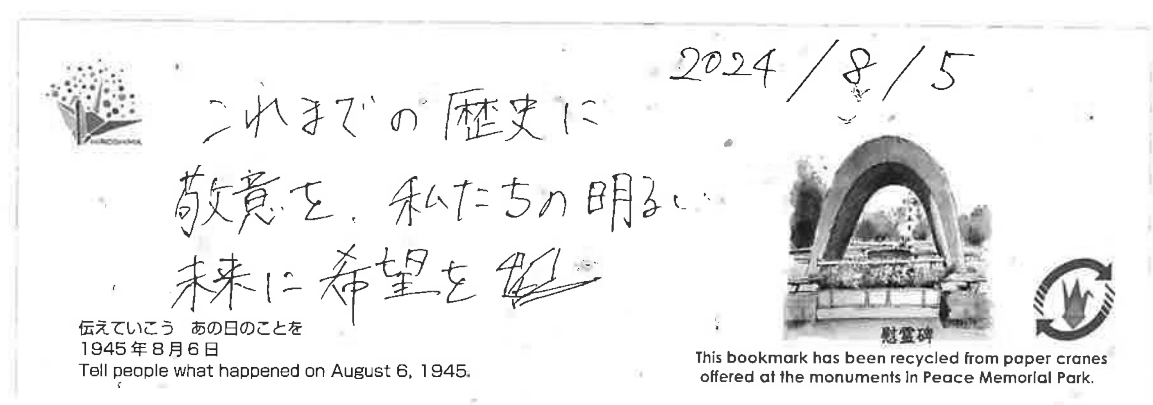 2024/8/5
HIROSHIMA
これまでの歴史に
敬意を、私たちの明るい
未来に希望を
伝えていこう　あの日のことを
1945年8月6日
Tell people what happened on August 6, 1945.
慰霊碑
This bookmark has been recycled from paper cranes
offered at the monuments in Peace Memorial Park.